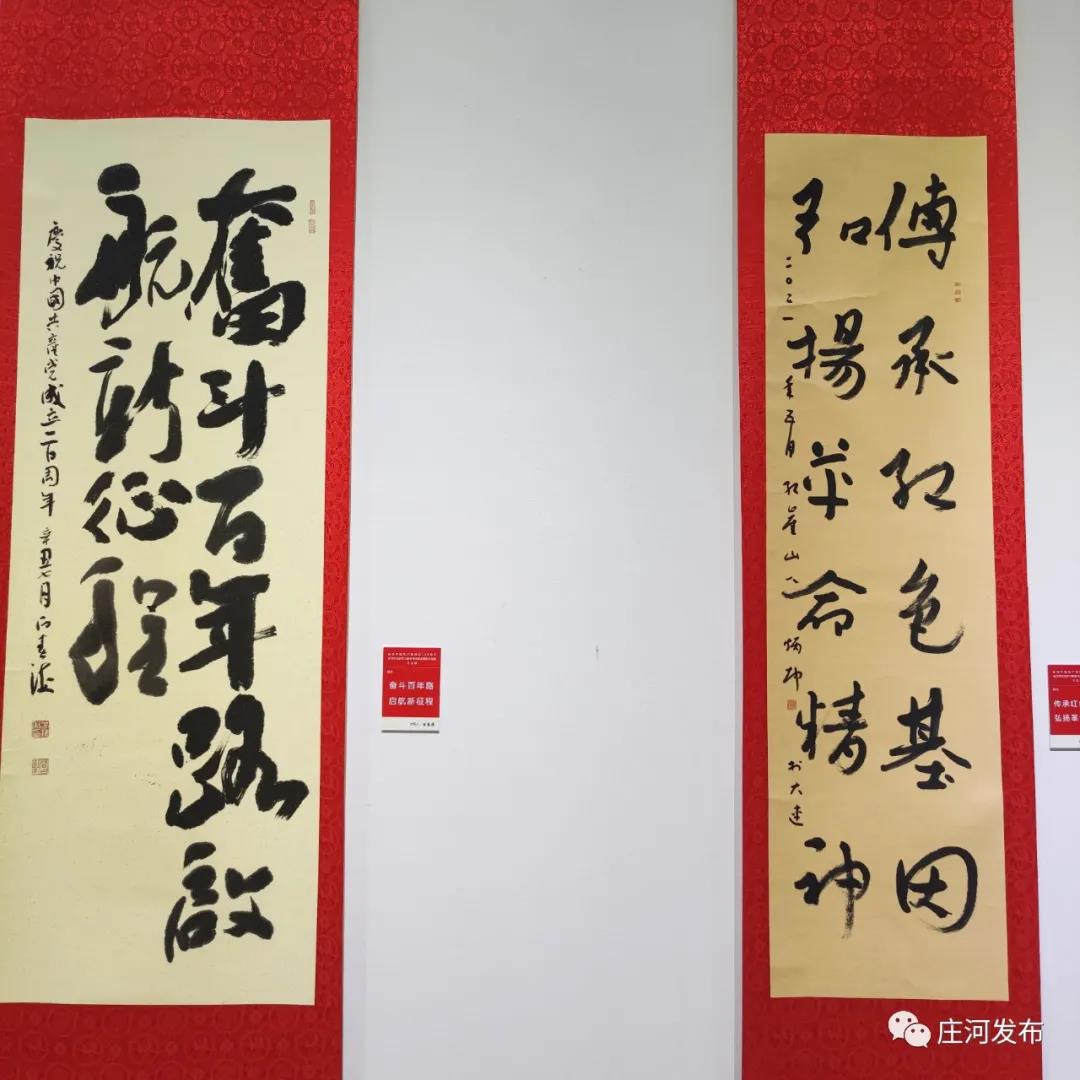 奮斗百年路啟
航新征程
慶祝中國共產党成立一百周年 辛丑七月
奋斗百年路
启航新征程
傳承红色基因
弘揚革命精神
二〇二一年五月 红崖山人 於大连
传承红
弘扬革
庄河发布